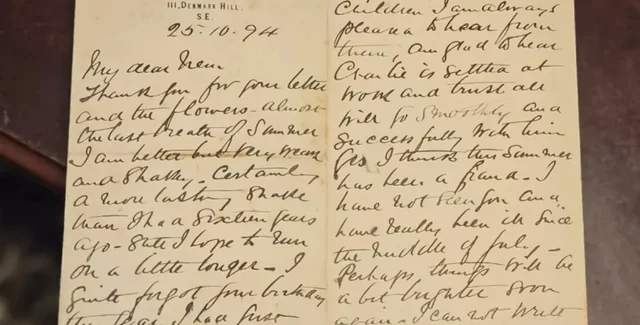 111, DENMARK HILL.
S.E.
25.10.94
My dear
Thank you for your letter
and the flowers - almost
the last breath of Summer
I am better but very weak
and shaky - Certainly
a more lasting shake
than I had sixteen years
ago - Still I hope to run
on a little longer - I
quite forgot your birthday
this year I had just
Children I am always
pleased to hear from
them, am glad to hear
Charlie is settled at
work and trust all
will go smoothly and
successfully with him
Yes I think this Summer
has been a fraud - I
have not seen you and
have really been ill since
the middle of July -
Perhaps things will be
a bit brighter soon
again - I can not write